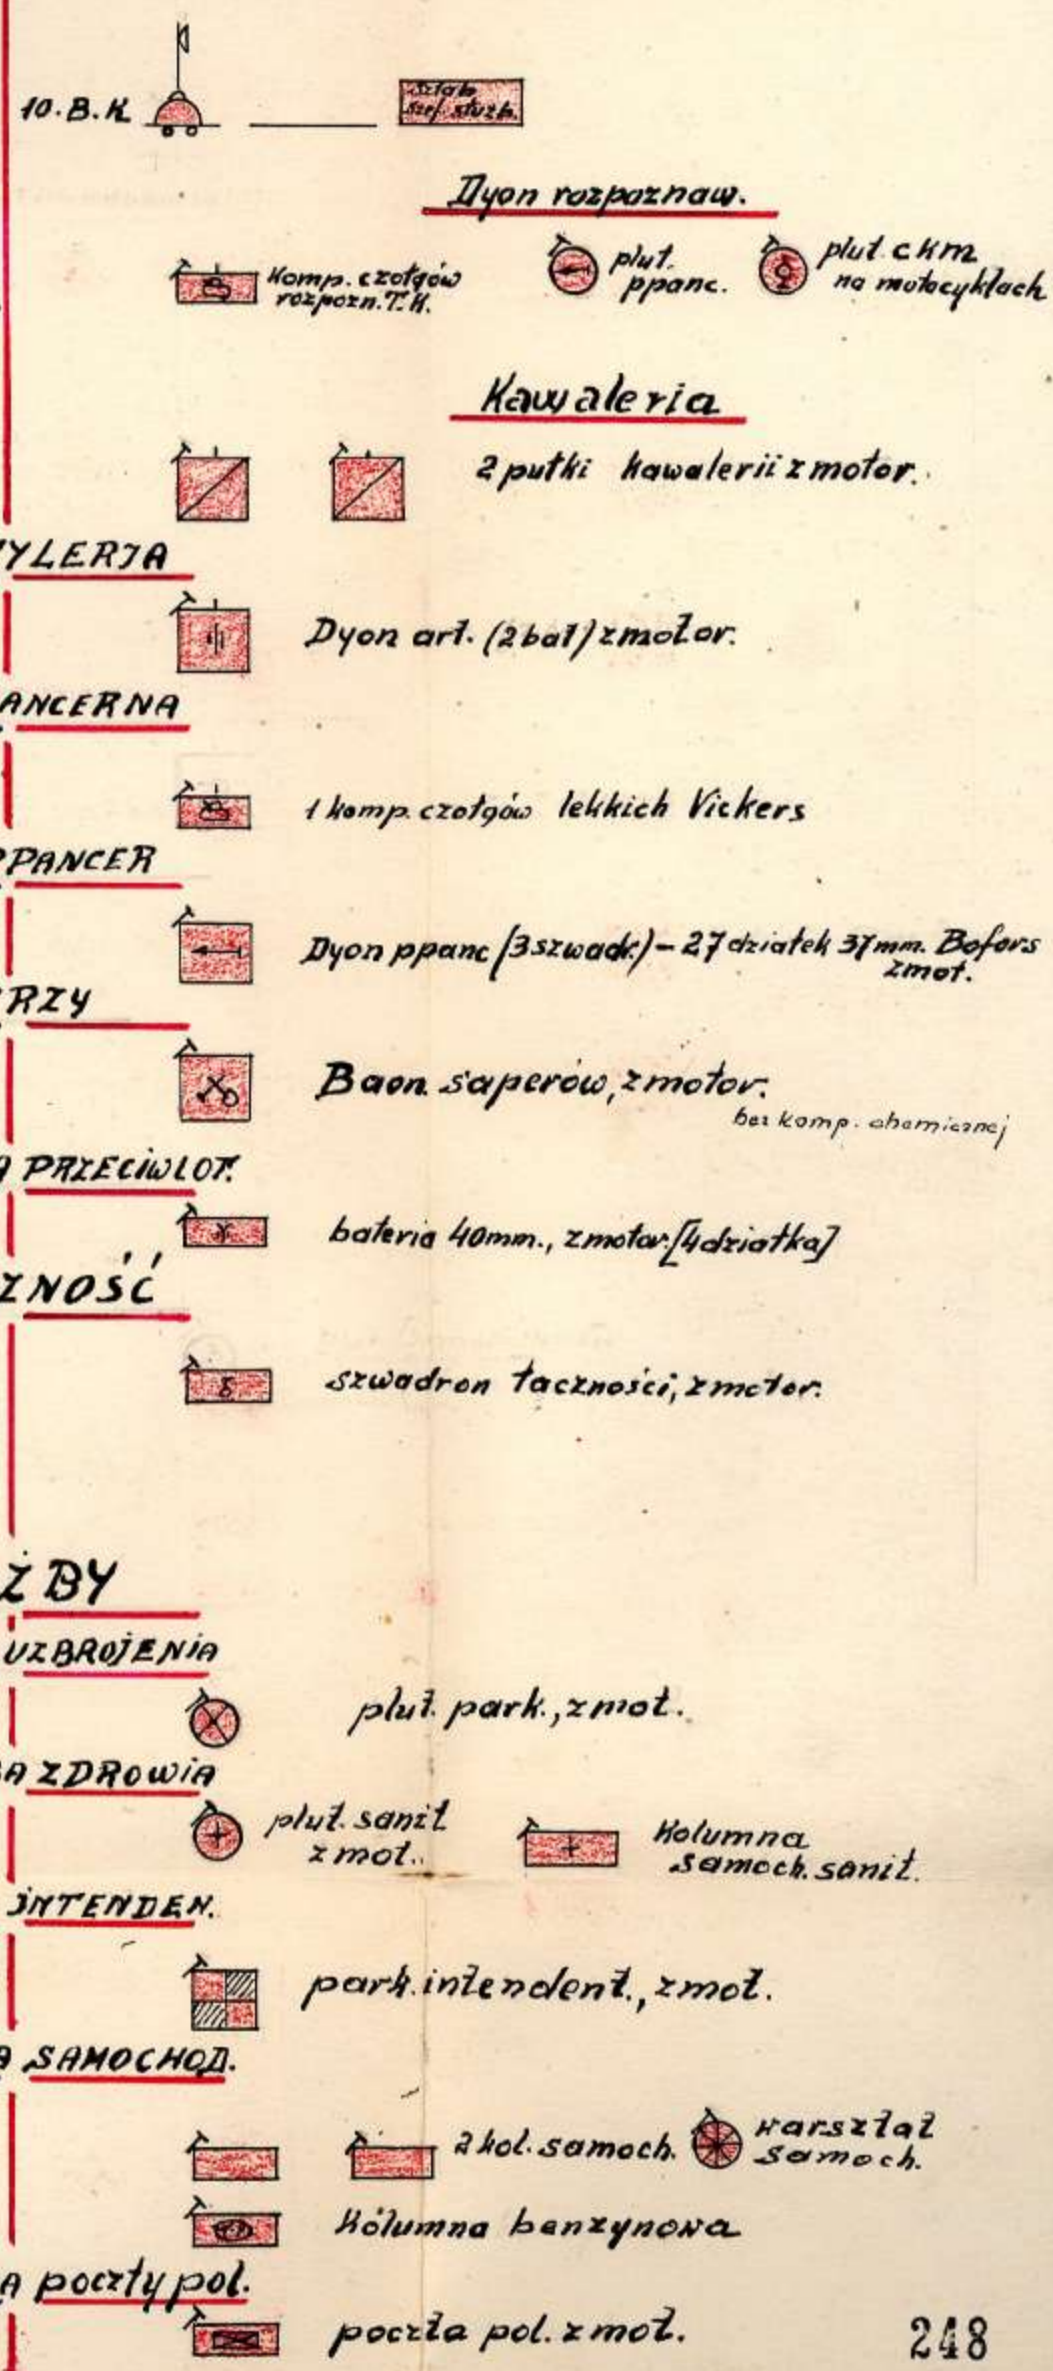 10. B. K
Sztab
szef. służb.
Dyon rozpoznaw.
Komp. czołgów
rozpozn. T. K.
plut.
ppanc.
plut. ckm
na motocyklach
Kawaleria
2 pułki kawalerii zmotor.
YLERJA
Dyon art. (2 bat) zmotor.
ANCERNA
1 komp. czołgów lekkich Vickers
PPANCER
Dyon ppanc (3 szwadr.) – 27 działek 37 mm. Bofors
zmot.
RZY
Baon saperów, zmotor.
bez komp. chemicznej
A PRZECIWLOT.
bateria 40mm., zmotor. [4 działka]
ZNOŚĆ
szwadron łączności, zmotor.
ŻBY
UZBROJENIA
plut. park., zmot.
A ZDROWIA
plut. sanit
zmot..
Kolumna
samoch. sanit.
INTENDEN.
park. intendent., zmot.
A SAMOCHOD.
2 kol. samoch.
warsztat
samoch.
Kolumna benzynowa
A poczty pol.
poczta pol. zmot.
248